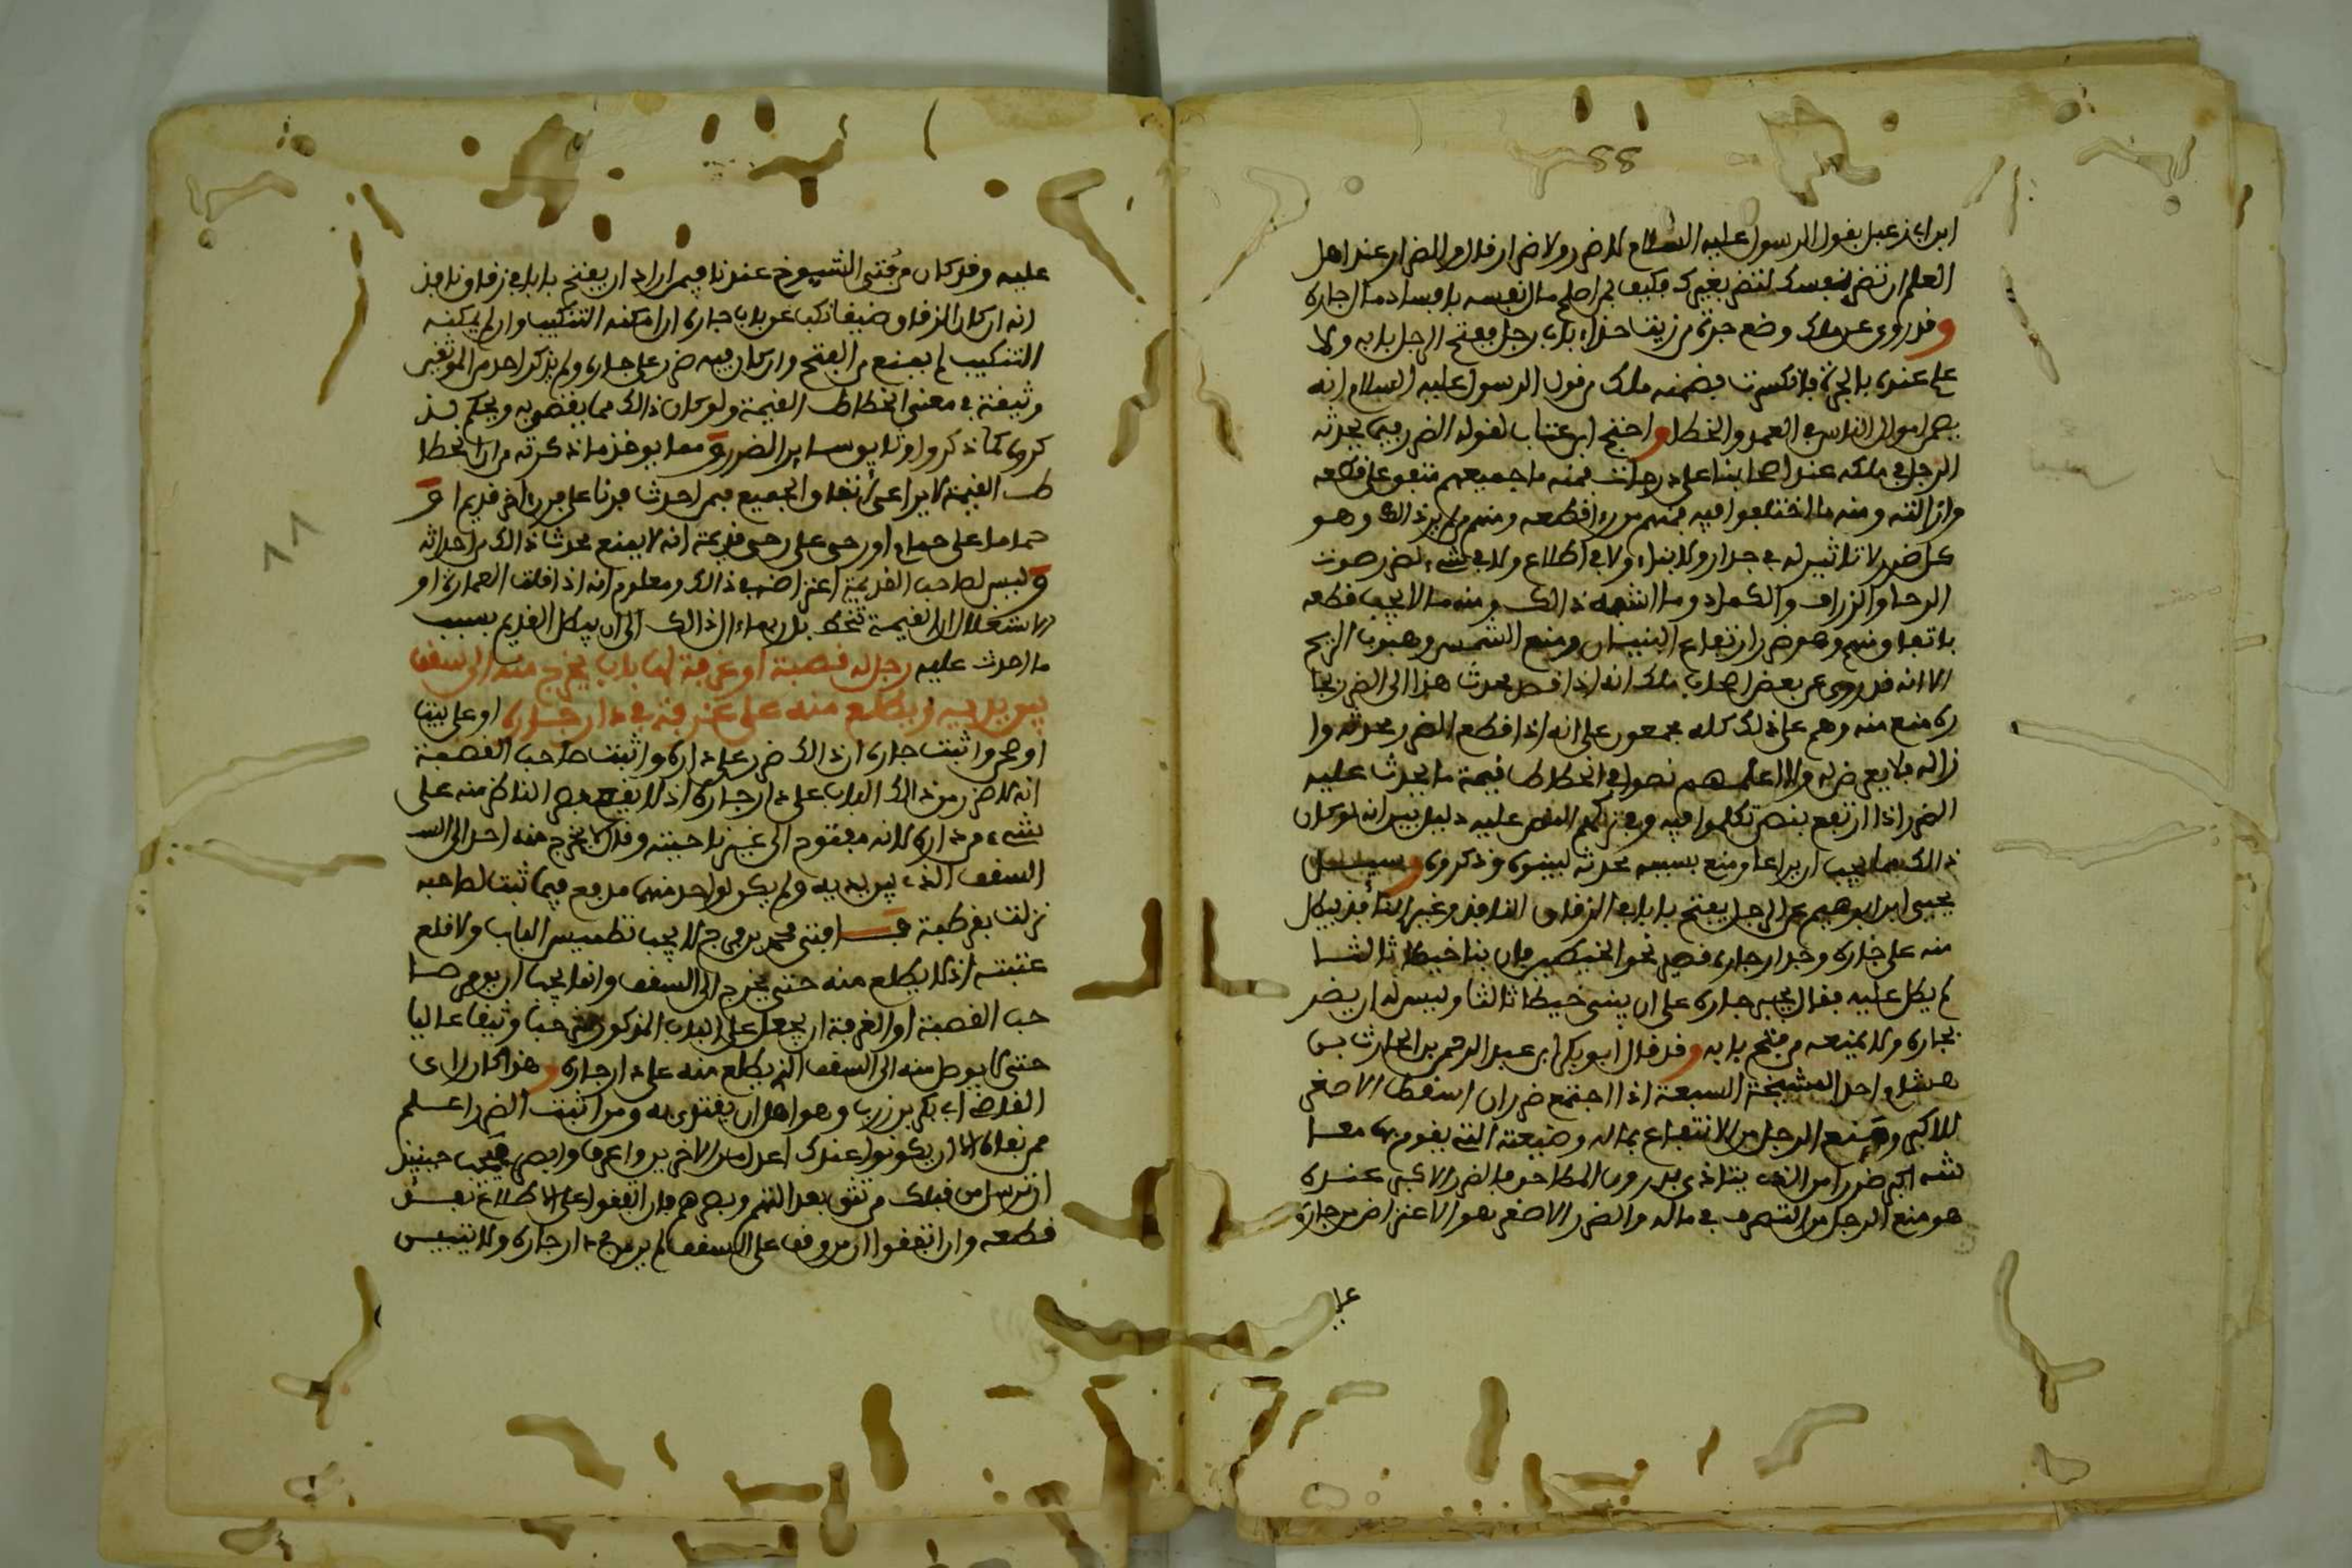 عليه السلام لا ضرر ولا ضرار قالوا والضرار عند اهل
العلم ان تضر نفسك لتضر بغيرك فكيف بمن اصلح مال نفسه بافساد مال جاره
وقد روي عن مالك وضع جرة من زيت حذاء باب رجل ففتح الرجل بابه ولا
علم عنده بالجرة فانكسرت فضمنه مالك من قول الرسول عليه السلام انه
اموال الناس في العمد والخطا واحتج ابن عتاب لقوله الضرر فيما يحدثه
الرجل في ملكه عند اصحابنا على درجات فمنه ما جميعهم متفق على قطعه
وازالته ومنه ما اختلفوا فيه فمنهم من راى قطعه ومنهم من لم ير ذالك وهو
كل ضرر لا تاثير له في جدار ولا بناء ولا في اطلاع ولا في شيء لضرر صوت
الرحا والكماد وما اشبه ذالك ومنه ما لا يجب قطعه
باتفاق منهم وهو ضرر ارتفاع البنيان ومنع الشمس وهبوب الريح
الا انه قد روي عن بعض اصحاب مالك انه اذا قصد محدث هذا الى الضرر بجا
ره منع منه وهم على ذلك كله مجمعون على انه اذا قطع الضرر محدثه وا
زاله فلا يعرض له ولا اعلمهم نصوا في انحطاط قيمة ما يحدث عليه
الضرر اذا ارتفع بنص تكلموا فيه
ذالك مما يجب ان يراعا ومنع بسببه محدثه لبينوه وذكروه وسيل
يحيى ابن ابراهيم عن الرجل يفتح بابا في الزقاق النافذ وغير النافذ فيطل
منه على جاره وجدار جاره قصير نحو الخيطين فان بنا خيطا ثالثا
لم يطل عليه فقال يجبر جاره على ان يبني خيطا ثالثا وليس له ان يضر
بجاره ولا يمنعه من فتح بابه وقد قال ابو بكر ابن عبد الرحمن بن الحارث بن
هشام احد المشيخة السبعة اذا اجتمع ضرران اسقط الاصغر
للاكبر ومنع الرجل من الانتفاع بماله وضيعته التي يقوم بها معا
شه اكبر ضررا من الذي يتاذى بدروب المطاحن فالضرر الاكبر عنده
هو منع الرجل من التصرف في ماله والضرر الاصغر هو الاعتراض من جاره
عليه وقد كان من فتيى الشيوخ عندنا فيمن اراد ان يفتح بابا في زقاق نافذ
انه ان كان الزقاق ضيقا نكب عن باب جاره ان امكنه التنكيب وان لم يمكنه
التنكيب لم يمنع من الفتح وان كان فيه ضرر على جاره ولم يذكر احد من الموثقين
وثيقة في معنى انحطاط القيمة ولو كان ذالك مما يقضون به ويحكم لذ
كروه كما ذكروا وثايق ساير الضرر ومما يوخذ ما ذكرته من ان انحطا
ط القيمة لا يراعى اتفاق الجميع فيمن احدث فرنا على فرن اخر قديم او
حماما على حمام او رحى على رحى قديمة انه لا يمنع محدث ذالك من احداثه
وليس لصاحب القديمة اعتراضه في ذالك ومعلوم انه اذا قلت العمارة او
الاشغال ان القيمة تنحط بل ربما ءال ذالك الى ان يبطل القديم بسبب
ما احدث عليه رجل له قصبة او غرفة لها باب يخرج منه الى سقف
بين يديه ويطلع منه على غرفة في دار جاره او على بيت
او حجرة واثبت جاره ان ذالك ضرر على داره واثبت صاحب القصبة
انه لا ضرر من ذالك الباب على دار جاره اذ لا يقع بصر الناظر منه على
شيء من داره لانه مفتوح الى غير ناحيته وقال لا يخرج منه احد الى الس
السقف الذي بين يديه ولم يكن لواحد منهما مدفع فيما ثبت لصاحبه
نزلت بقرطبة فافتى محمد بن فرج لا يجب تطميس الباب ولا قلع
عتبته اذ لا يطلع منه حتى يخرج الى السقف وانما يجب ان يومر صا
حب القصبة او الغرفة ان يجعل على الباب المذكور وثيقا عاليا
حتى لا يوصل منه الى السقف الذي يطلع منه على دار جاره وهذا كان راى
القاضي ابي بكر بن زرب وهو اهل ان يقتدى به ومن اثبت الضرر اعلم
ممن نفاه الا ان يكونوا عندك اعدل من الاخرين واعرف وابصر فيجب حينئذ
ان ترسل من قبلك من تثق بعدالتهم وبصرهم فان اتفقوا على الاطلاع
قطعه وان اتفقوا ان من وقف على السقف لم ير من في دار جاره ولا يتبين